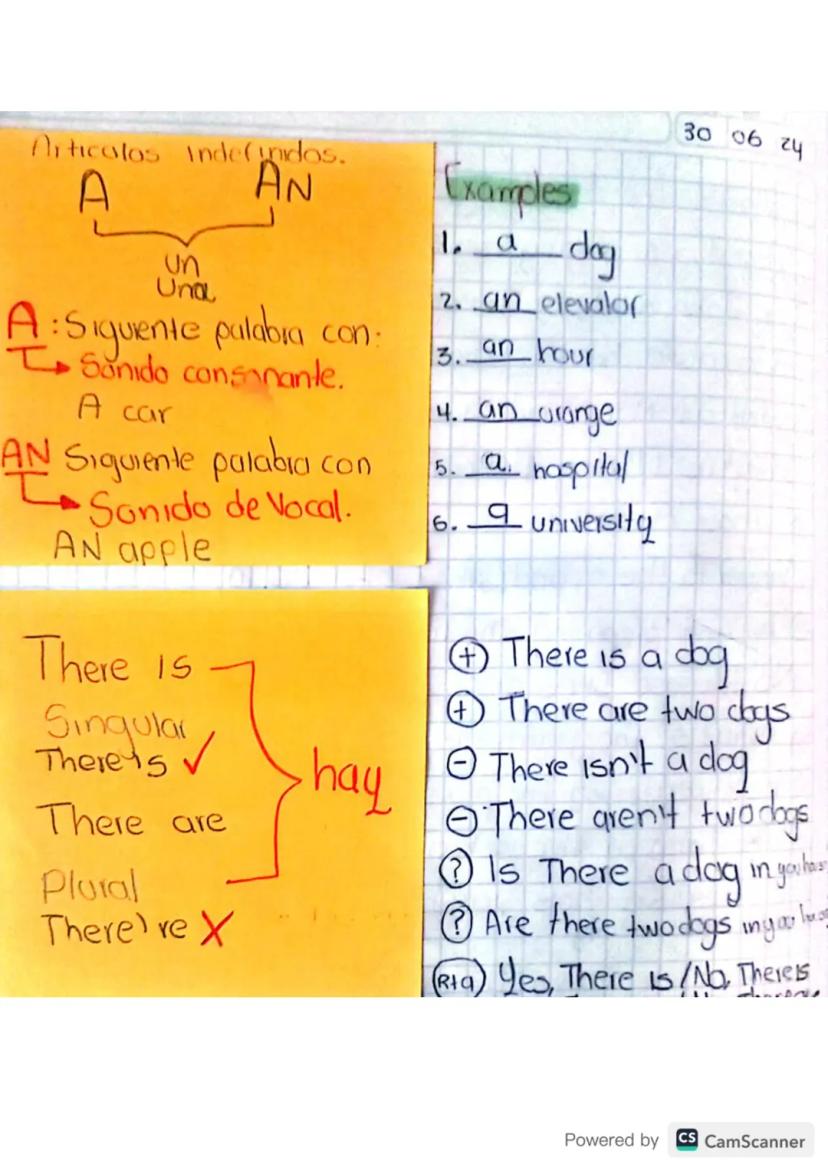 30 06 24
Articulos indefinidos.
A AN
un
Una
A: Siguiente palabra con:
Sonido consonante.
A car
AN Siguiente palabra con
Sonido de Vocal.
AN apple
Examples
1. a dog
2. an elevator
3. an hour
4. an orange
5. a hospital
6. a university
There is
Singular
There's ✓
There are
Plural
There're X
hay
(+) There is a dog
(+) There are two dogs
(-) There isn't a dog
(-) There aren't two dogs
(?) Is There a dog in
(?) Are there two dogs in
(Rta) Yes, There is / No, There is
Powered by CS CamScanner